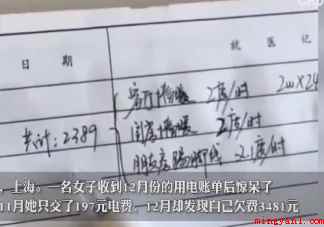 日 期
就 医 记
客厅 2度/时 2w×24
共计:2389
2度/时
2.1度/时
，上海。一名女子收到12月份的用电账单后惊呆了
11月她只交了197元电费，12月却发现自己欠费3481元
mingyanl.com